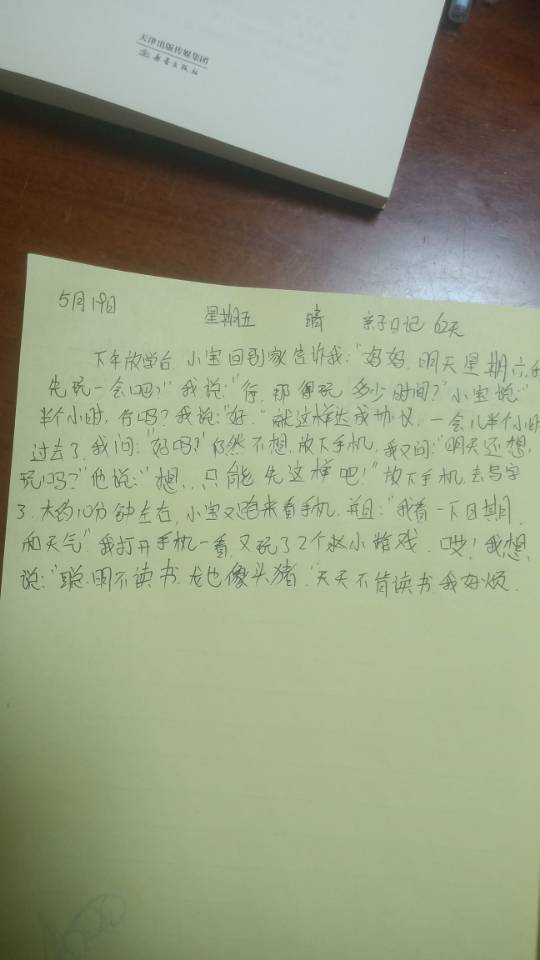 天津出版传媒集团
新蕾出版社
5月19日 星期五 晴 亲子日记 62天
下午放学后,小宝回到家告诉我:"妈妈,明天星期六,我
先玩一会吗?"我说:"行,那得玩多少时间?"小宝说:"
半个小时,行吗?我说:"好."就这样达成协议,一会儿半个小时
过去了,我问:"好吗?"仍然不想放下手机,我又问:"明天还想
玩吗?"他说:"想,只能先这样吧!"放下手机去写字
了,大约10分钟左右,小宝又跑来看手机,并且:"我看一下日期
和天气"我打开手机一看,又玩了2个小游戏.哎!我想
说:"聪明不读书,龙也像头猪."天天不肯读书我好烦.